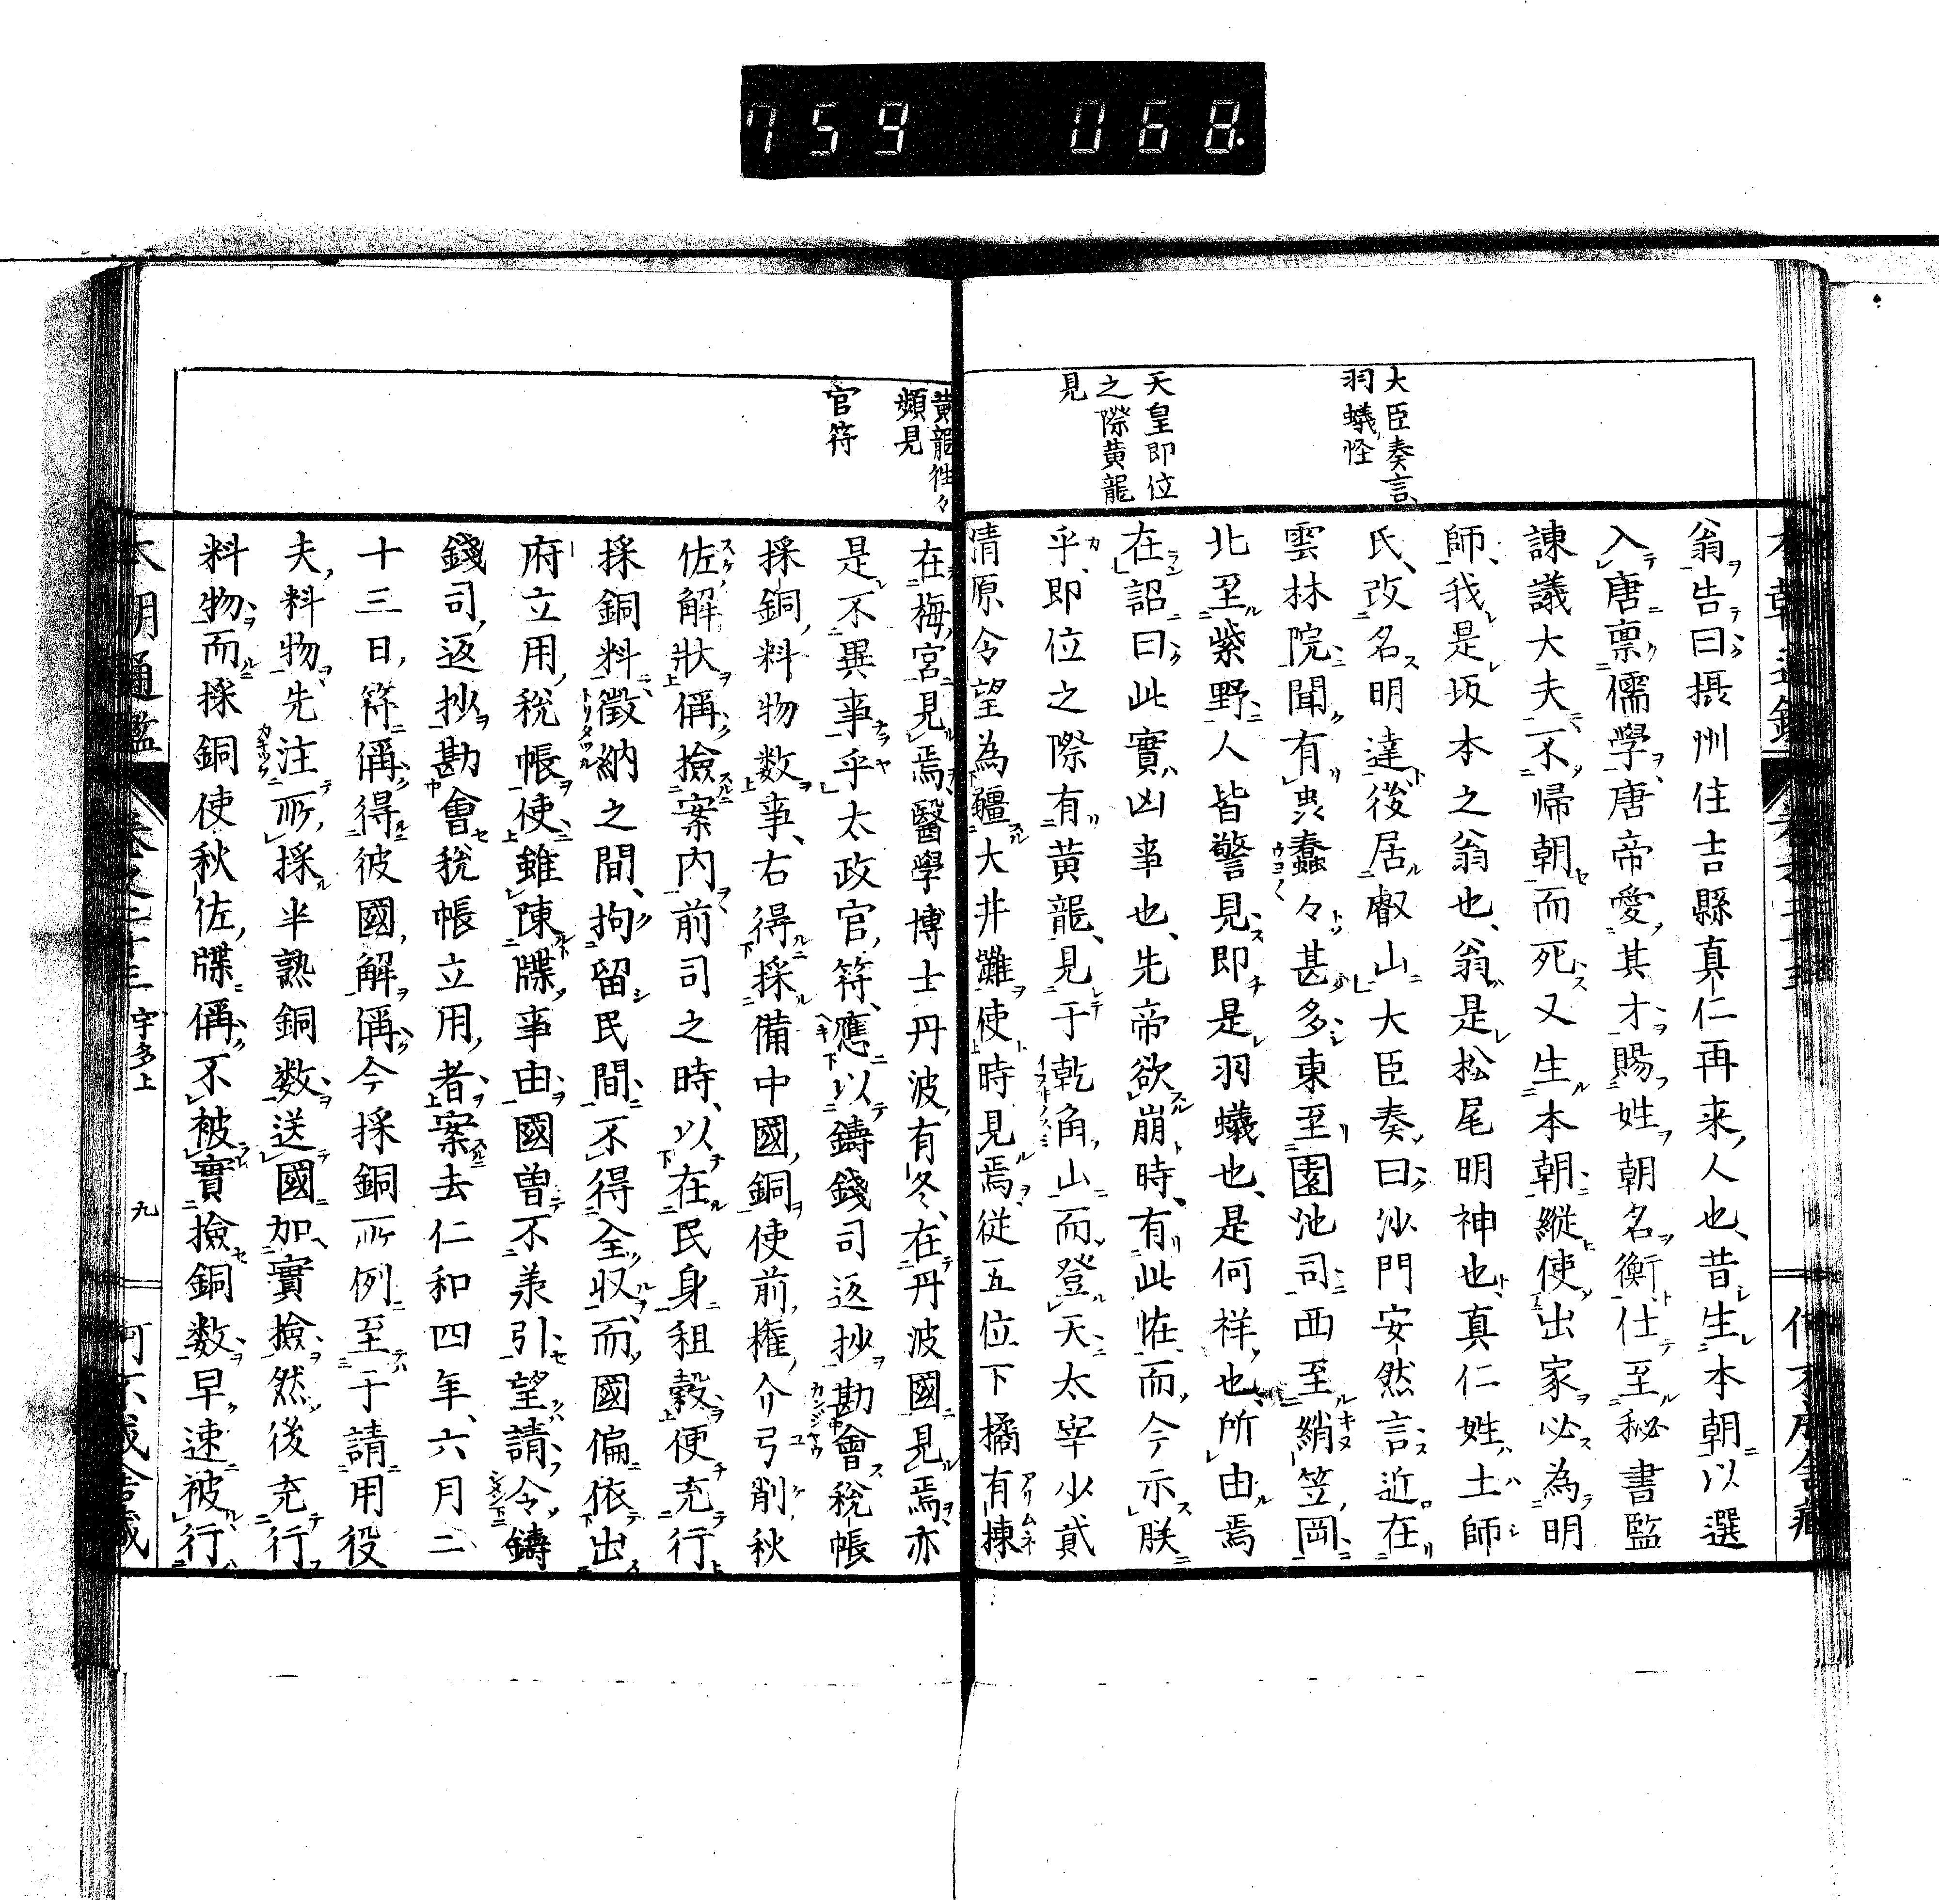 759 068.
大臣奏言
羽蟻怪
天皇即位
之際黄龍
見
翁告曰摂州住吉縣真仁再来人也昔生本朝以選
入唐禀儒學唐帝愛其才賜姓朝名衡仕至秘書監
諫議大夫不帰朝而死又生本朝縦使出家必為明
師我是坂本之翁也翁是松尾明神也真仁姓土師
氏改名明達後居叡山大臣奏曰沙門安然言近在
雲林院聞有虫蠢々甚多東至園池司西至綃笠岡
北至紫野人皆警見即是羽蟻也是何祥也所由焉
在詔曰此實凶事也先帝欲崩時有此恠而今示朕
乎即位之際有黄龍見于乾角山而登天太宰少貳
清原令望為疆大井灘使時見焉従五位下橘有棟
黄龍徃々
頻見
官符
在梅宮見焉醫學博士丹波有冬在丹波國見焉亦
是不異事乎太政官符應以鑄錢司返抄勘會税帳
採銅料物数事右得採備中國銅使前権介弓削秋
佐解狀偁撿案内前司之時以在民身租穀便充行
採銅料徴納之間拘留民間不得全収而國偏依出
府立用税帳使雖陳牒事由國曽不羕引望請令鑄
錢司返抄勘會税帳立用者案去仁和四年六月二
十三日符偁得彼國解偁今採銅所例至于請用役
夫料物先注所採半熟銅数送國加實撿然後充行
料物而採銅使秋佐牒偁不被實撿銅数早速被行
本朝通鑑
宇多上
九